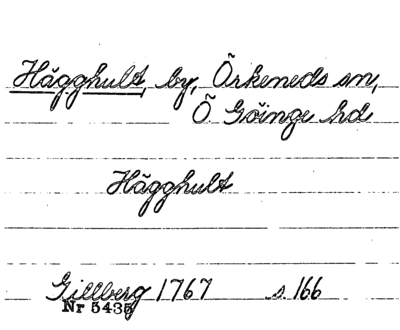 Hägghult, by, Örkeneds sn,
Ö Göinge hd
Hägghult
Gillberg 1767 s. 166
Nr 5435